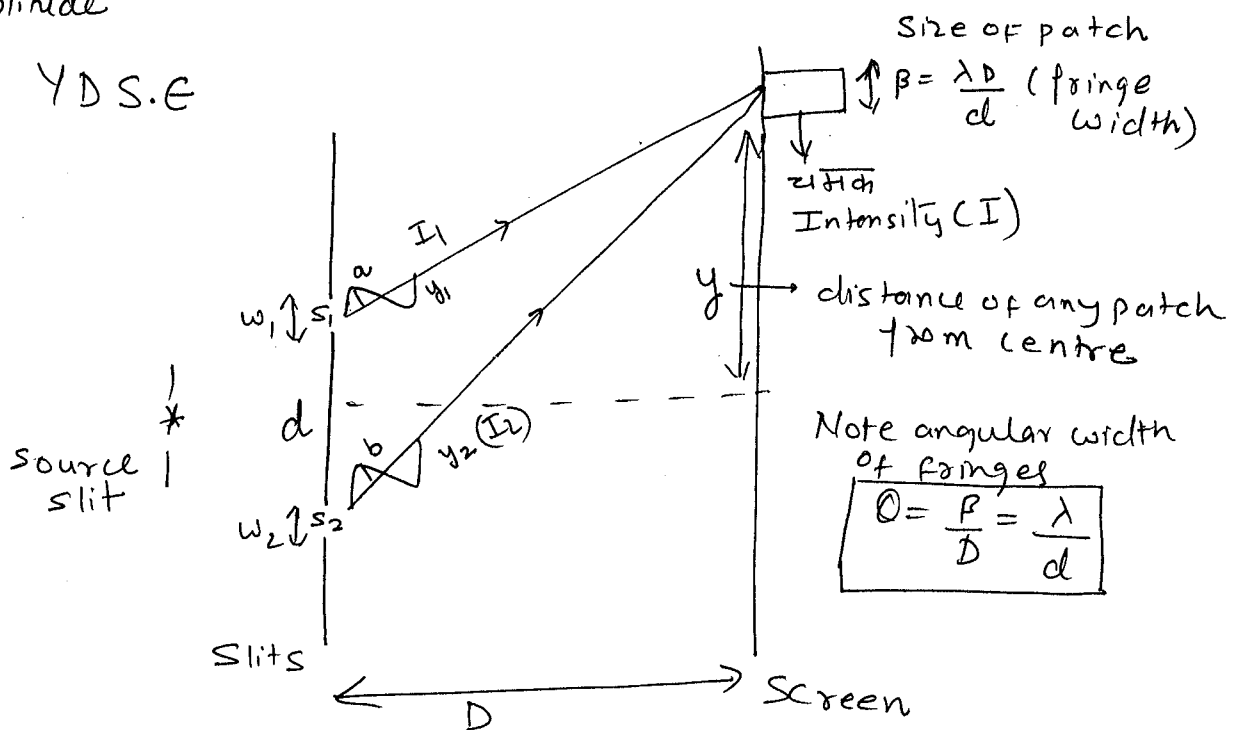 YDS.E
Size of patch
β = λD/d (fringe width)
चमक
Intensity (I)
I1
a
y1
w1 S1
y → distance of any patch from centre
d
source slit
b
y2 (I2)
w2 S2
Note angular width of fringes
θ = β/D = λ/d
Slits
D
Screen